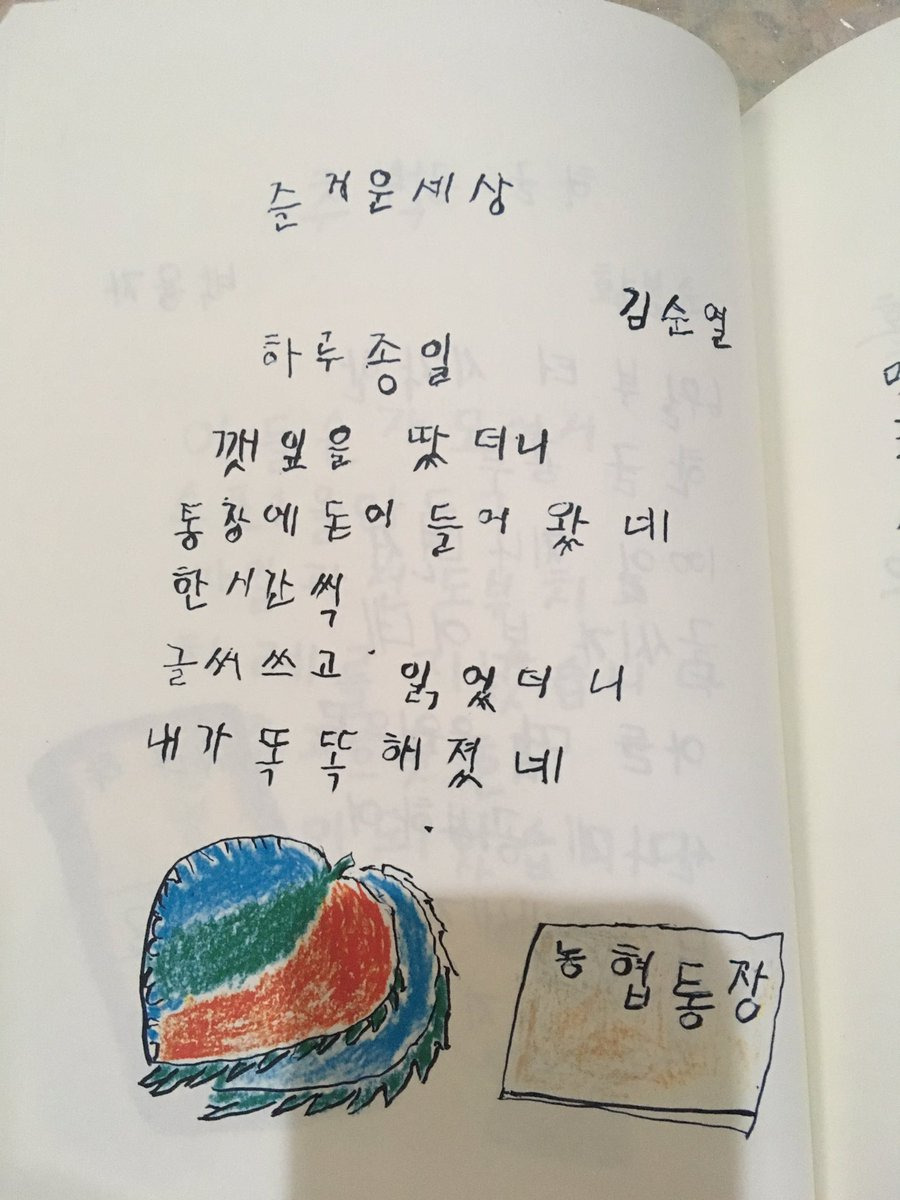 즐거운세상
김순열
하루종일
깻잎을 땄더니
통장에돈이 들어 왔네
한시간씩
글씨쓰고 읽었더니
내가 똑똑해졌네
농협통장